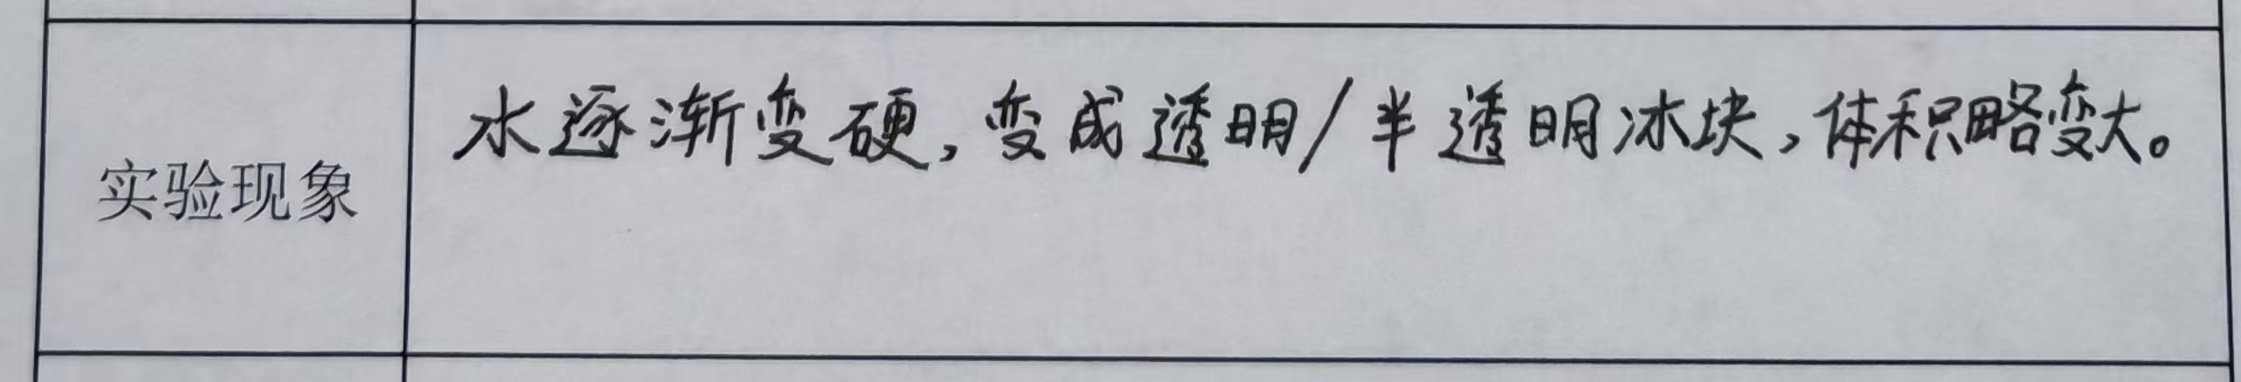 水逐渐变硬，变成透明/半透明冰块，体积略变大。
实验现象